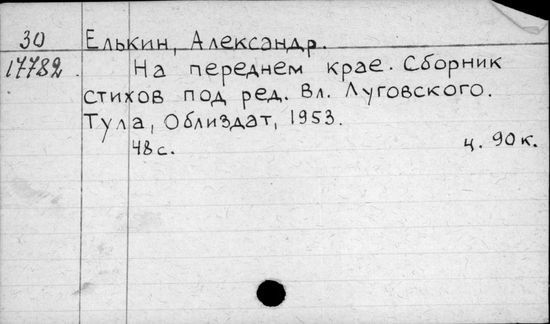 30 Елькин, Александр.
17782. На переднем крае. Сборник
стихов под ред. Вл. Луговского.
Тула, Облиздат, 1953.
48 с. ц. 90 к.